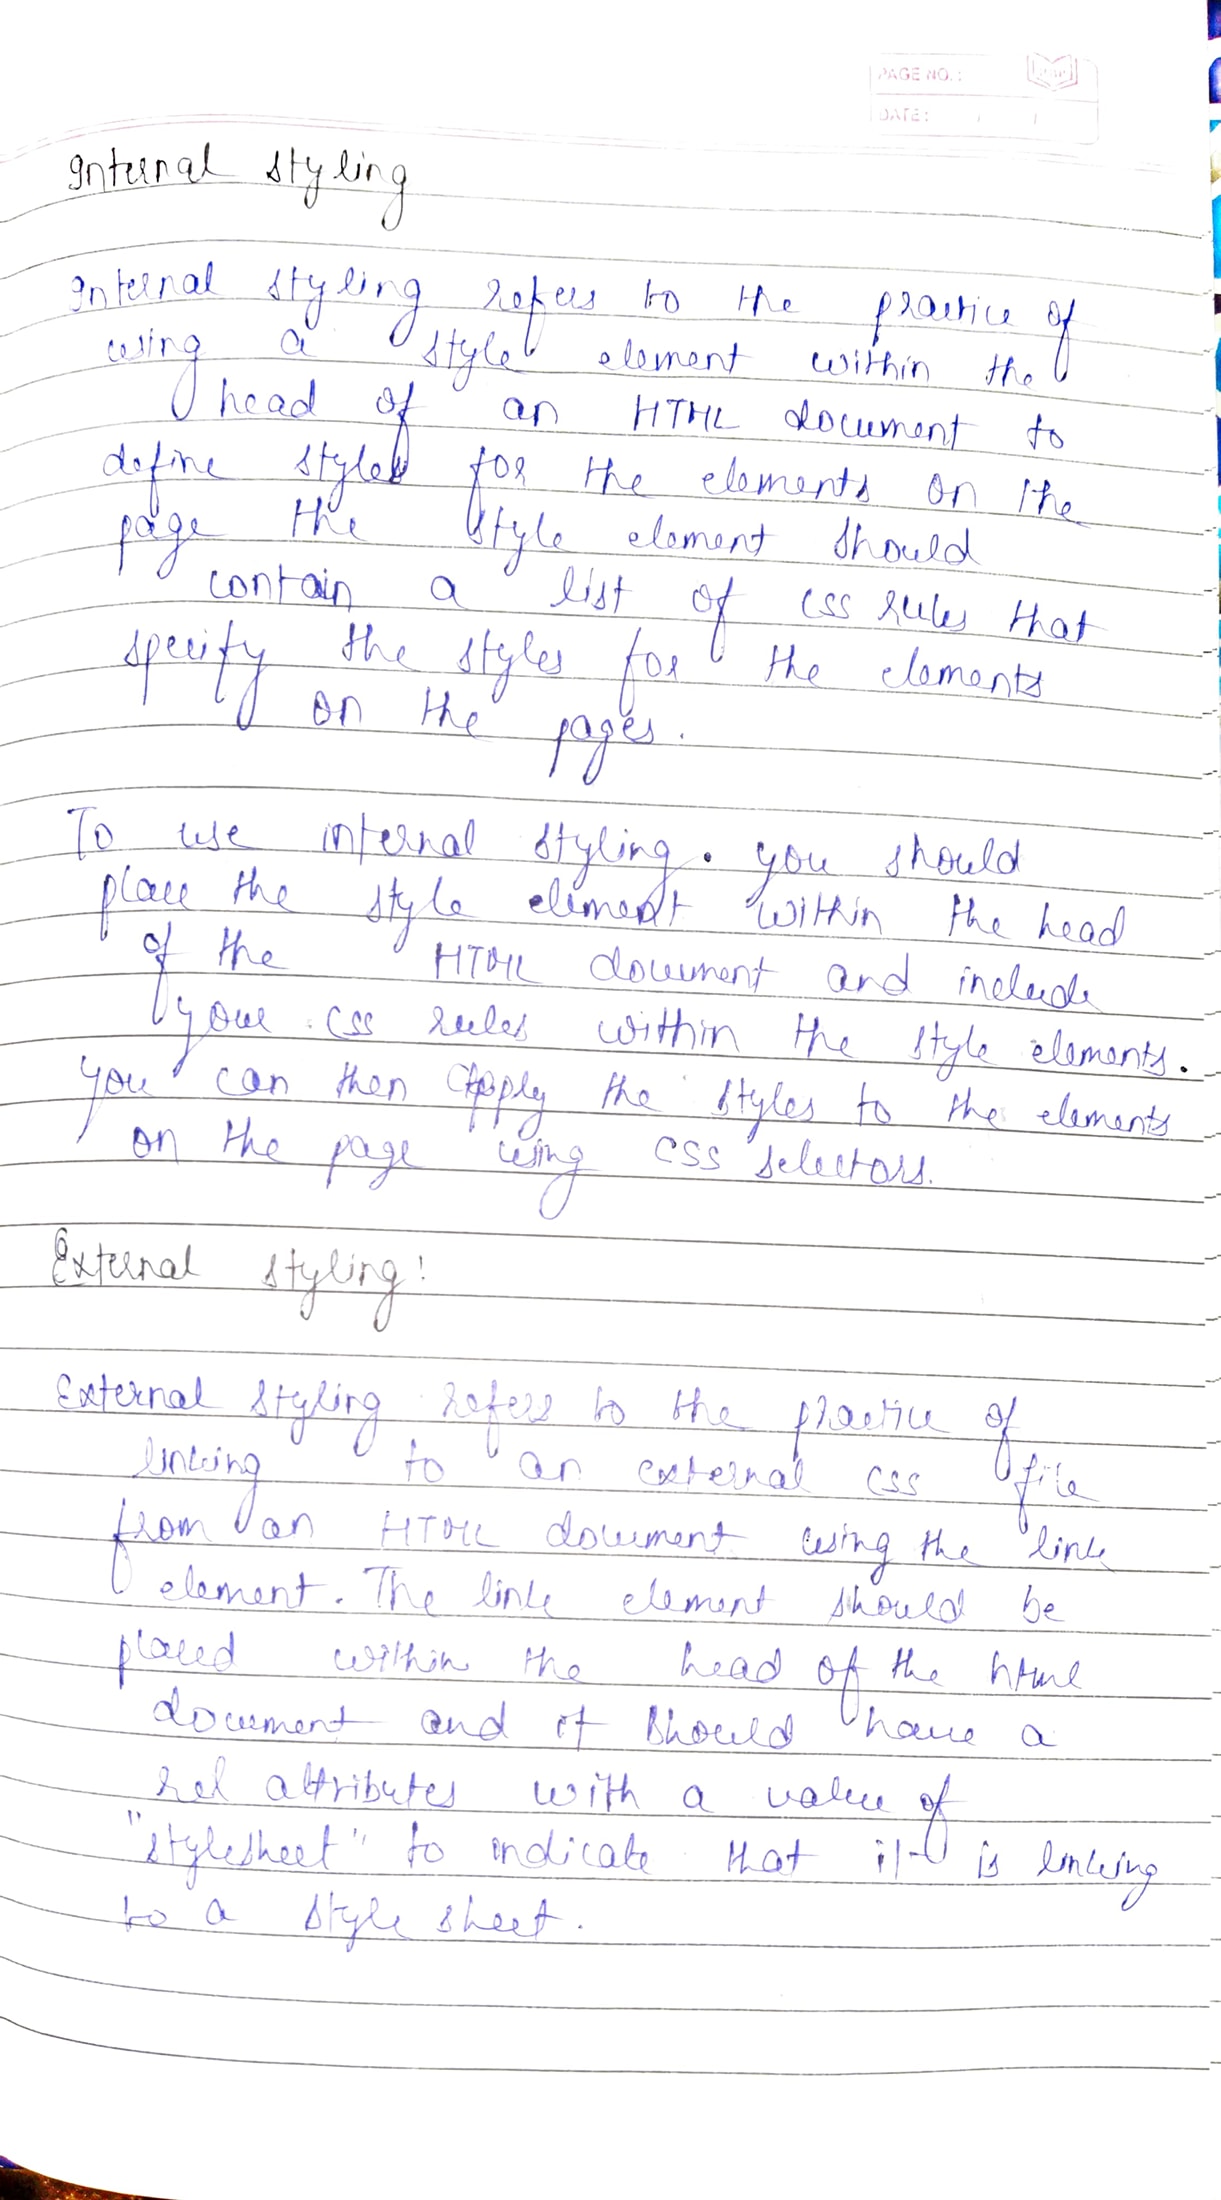 PAGE NO.:
DATE:
Internal styling
Internal styling refers to the practice of
using a style element within the
head of an HTML document to
define styles for the elements on the
page the style element should
contain a list of CSS rules that
specify the styles for the elements
on the pages.
To use internal styling. you should
place the style element within the head
of the HTML document and include
your css rules within the style elements.
you can then apply the styles to the elements
on the page using CSS selectors.
External styling:
External styling refers to the practice of
linking to an external css file
from an HTML document using the link
element. The link element should be
placed within the head of the html
document and it should have a
rel attributes with a value of
"stylesheet" to indicate that it is linking
to a style sheet.